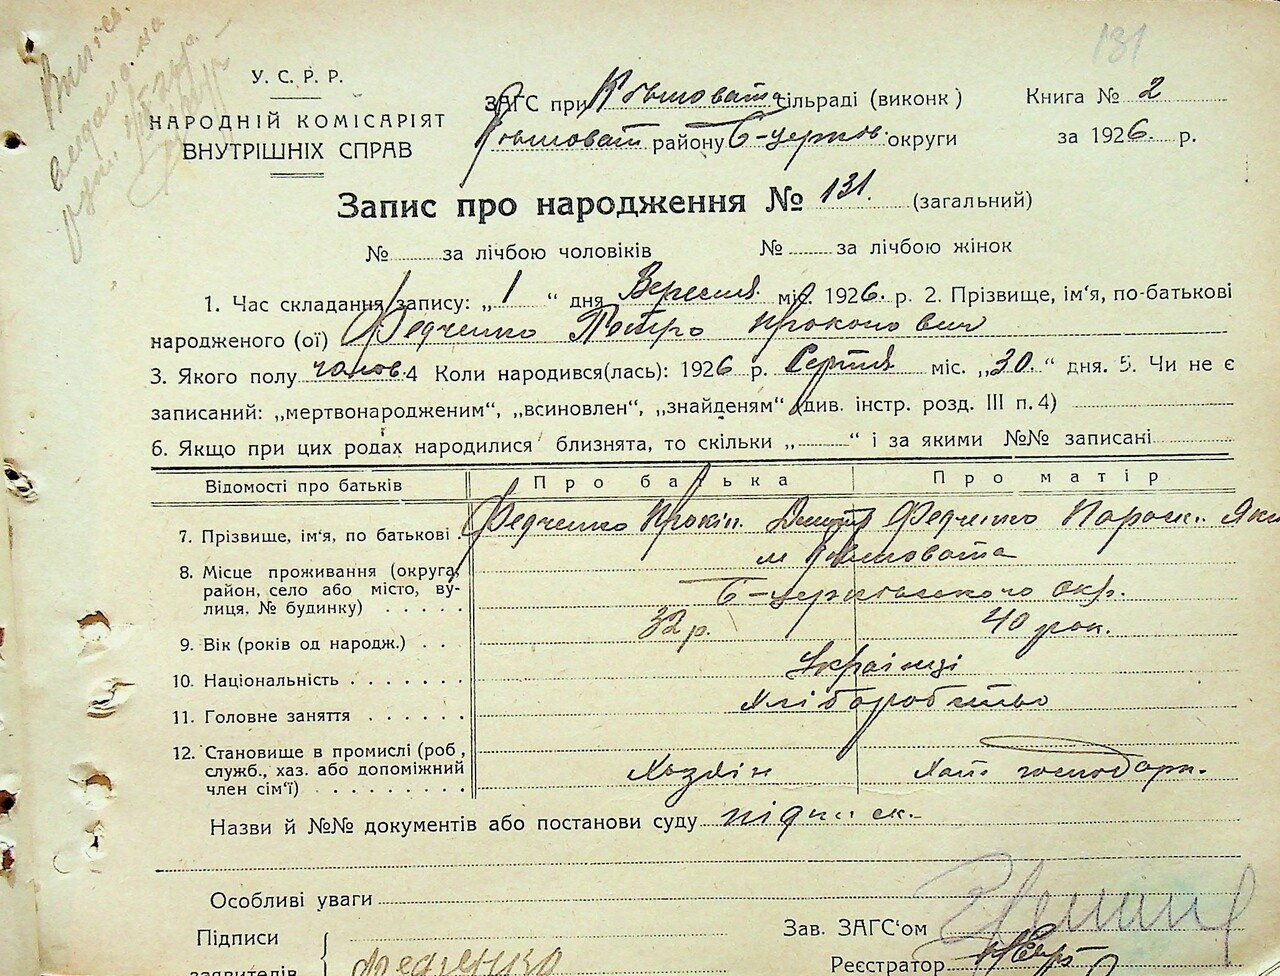 131
У. С. Р. Р.
НАРОДНІЙ КОМІСАРІЯТ
ВНУТРІШНІХ СПРАВ
ЗАГС при Ківшовата сільраді (виконк)
Ківшоват району Б-церков. округи
Книга № 2
за 1926. р.
Запис про народження № 131. (загальний)
№ за лічбою чоловіків № за лічбою жінок
1. Час складання запису: „1“ дня Вересня міс. 1926. р. 2. Прізвище, ім'я, по-батькові
народженого (ої) Федченко Петро Прокопович
3. Якого полу чолов. 4 Коли народився(лась): 1926 р. Серпня міс. „30.“ дня. 5. Чи не є
записаний: „мертвонародженим“, „всиновлен“, „знайденям“ (див. інстр. розд. III п. 4)
6. Якщо при цих родах народилися близнята, то скільки „ “ і за якими №№ записані
Відомості про батьків Про батька Про матір
7. Прізвище, ім'я, по батькові Федченко Прокіп. Дмитр Федченко Параск. Яки
8. Місце проживання (округа, район, село або місто, ву-
лиця, № будинку) м Ківшовата
Б-церківського окр.
9. Вік (років од народж.) 32 р. 40 рок.
10. Національність Українці
11. Головне заняття Хліборобство
12. Становище в промислі (роб., служб., хаз. або допоміжний
член сім'ї) Хазяїн Хат. господарк.
Назви й №№ документів або постанови суду підписк.
Особливі уваги
Підписи
заявителів Федченко
Зав. ЗАГС'ом
Реєстратор